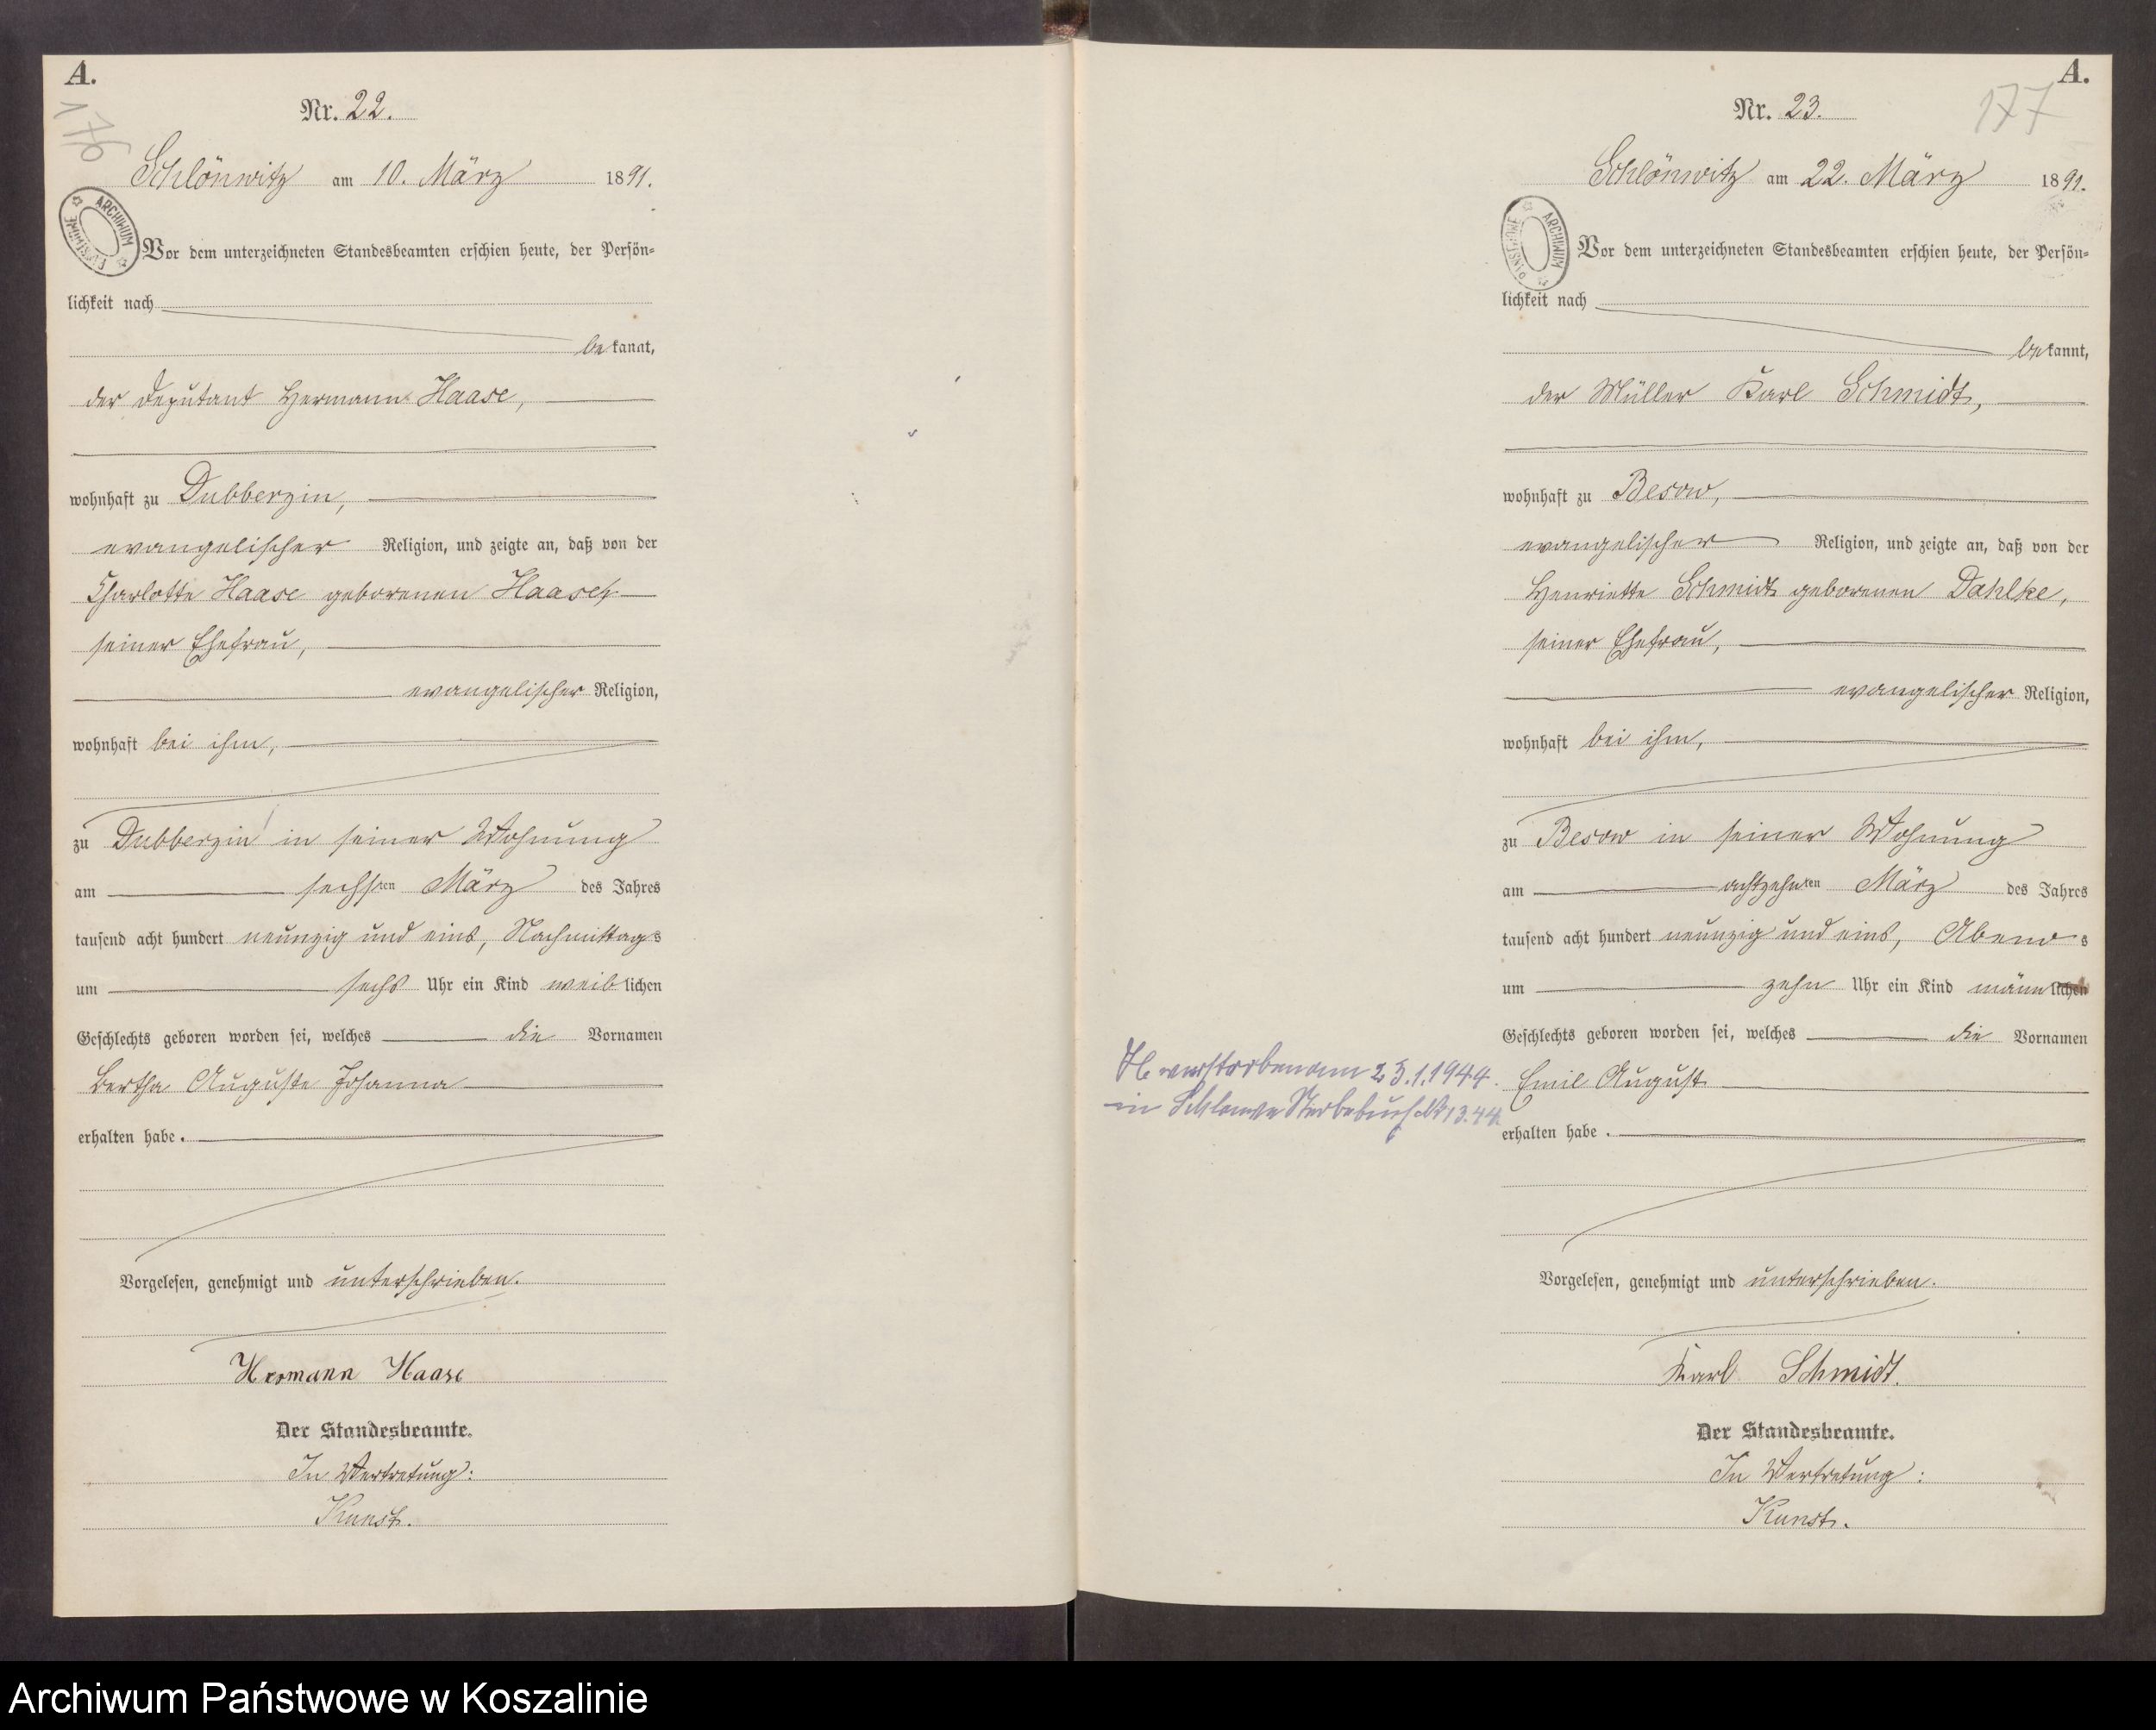 A.
176
Nr. 22.
Schlönwitz am 10. März 1891.
ARCHIWUM PAŃSTWOWE
Vor dem unterzeichneten Standesbeamten erschien heute, der Persön-
lichkeit nach
bekannt,
der Deputant Hermann Haase,
wohnhaft zu Dubberzin,
evangelischer Religion, und zeigte an, daß von der
Charlotte Haase geborenen Haase,
seiner Ehefrau,
evangelischer Religion,
wohnhaft bei ihm,
zu Dubberzin in seiner Wohnung
am sechsten März des Jahres
tausend acht hundert neunzig und eins, Nachmittags
um sechs Uhr ein Kind weiblichen
Geschlechts geboren worden sei, welches die Vornamen
Bertha Auguste Johanna
erhalten habe.
Vorgelesen, genehmigt und unterschrieben.
Hermann Haase
Der Standesbeamte.
In Vertretung:
Kunst.
A.
177
Nr. 23.
Schlönwitz am 22. März 1891.
ARCHIWUM PAŃSTWOWE
Vor dem unterzeichneten Standesbeamten erschien heute, der Persön-
lichkeit nach
bekannt,
der Müller Karl Schmidt,
wohnhaft zu Besow,
evangelischer Religion, und zeigte an, daß von der
Henriette Schmidt geborenen Dahlke,
seiner Ehefrau,
evangelischer Religion,
wohnhaft bei ihm,
zu Besow in seiner Wohnung
am achtzehnten März des Jahres
tausend acht hundert neunzig und eins, Abends
um zehn Uhr ein Kind männlichen
Geschlechts geboren worden sei, welches die Vornamen
Emil August
erhalten habe.
verstorben am 23.1.1944.
in Schlawe Sterbebuch Nr 13.44.
Vorgelesen, genehmigt und unterschrieben.
Karl Schmidt.
Der Standesbeamte.
In Vertretung:
Kunst.
Archiwum Państwowe w Koszalinie